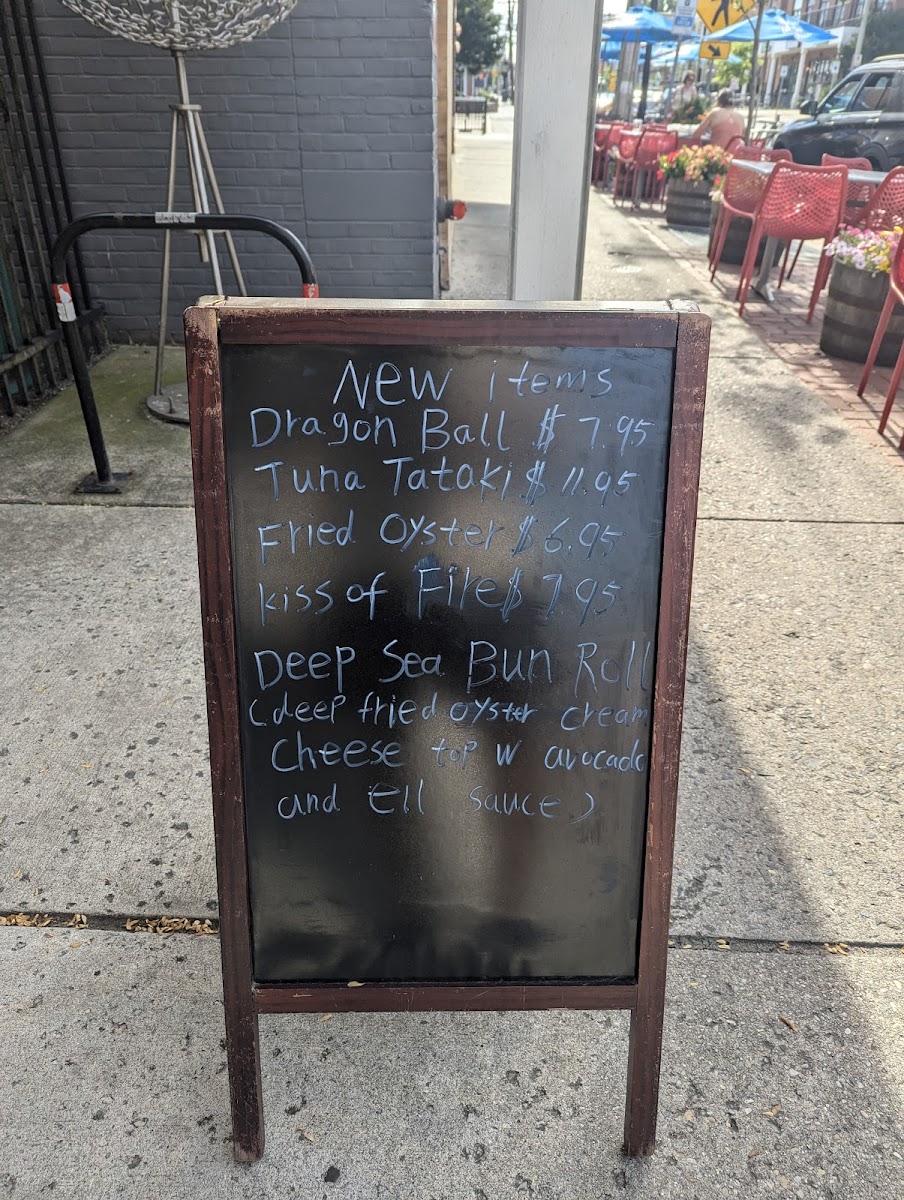 New items
Dragon Ball $7.95
Tuna Tataki $11.95
Fried Oyster $6.95
kiss of Fire $7.95
Deep Sea Bun Roll
(deep fried oyster cream
cheese top w avocado
and Ell sauce)